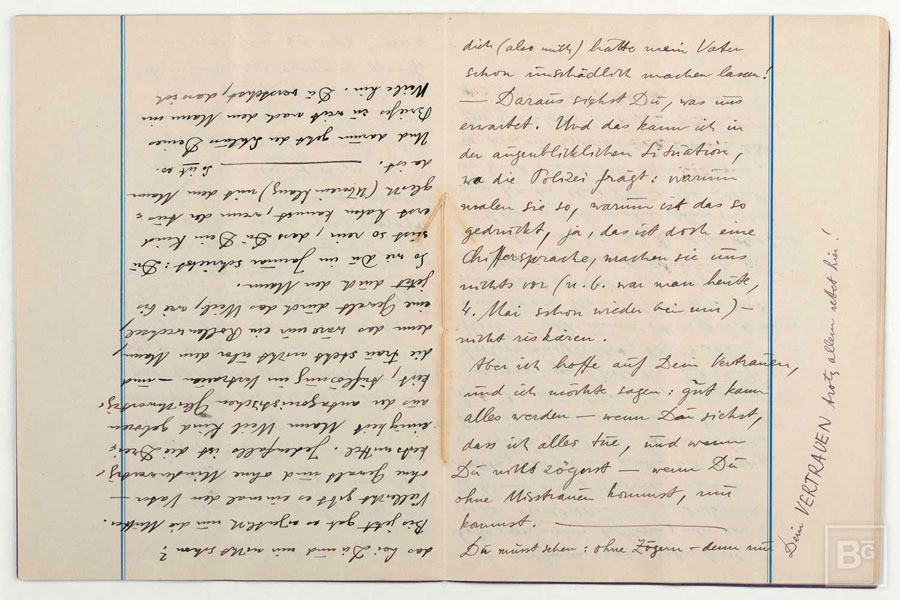 das bei Du und mir nicht schon?
Bis jetzt gab es eigentlich nur die Mutter.
Vielleicht gibt es einmal den Vater –
ohne Gewalt und ohne Minderwertig,
Jedenfalls ist die Drei,
einigkeit Mann Weib Kind geboren
aus der antagonistischen Gleichwertig,
keit, Auflösung im Vertrauen – und
die Frau steht nicht über dem Mann,
denn das wäre nur ein Rollenwechsel,
eine Gewalt durch das Weib, wie bis
jetzt durch den Mann.
So wie Du im Januar schriebst: Du
bist so rein, dass Du Dein Kind
erst haben kannst, wenn der Aus,
gleich mit dem Mann
da ist. — So ist es.
Und darum geht der Schluss Deines
Briefes zu weit nach dem Mann im
Weibe hin. Du verstehst, dass ich
dich (also mich) hätte mein Vater
schon unschädlich machen lassen!
– Daraus siehst Du, was uns
erwartet. Und das kann ich in
der augenblicklichen Situation,
wo die Polizei frägt: warum
malen sie so, warum ist das so
gedruckt, ja, das ist doch eine
Chiffersprache, machen sie uns
nichts vor (n. b. war man heute,
4. Mai schon wieder bei mir) –
nicht riskieren.
Aber ich hoffe auf Dein Vertrauen,
und ich möchte sagen: gut kann
alles werden – wenn Du siehst,
dass ich alles tue, und wenn
Du nicht zögerst – wenn Du
ohne Misstrauen kommst, nur
kommst. —
Du musst sehen: ohne Zögern – denn nur
Dein VERTRAUEN trotz allem rettet hier!
BG